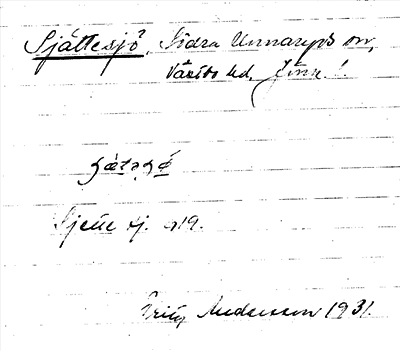 Sjättesjö, Södra Unnaryds sn,
Västbo hd, Jönk. l.
Sjette sj. 1719.
Fritz Andersson 1931.